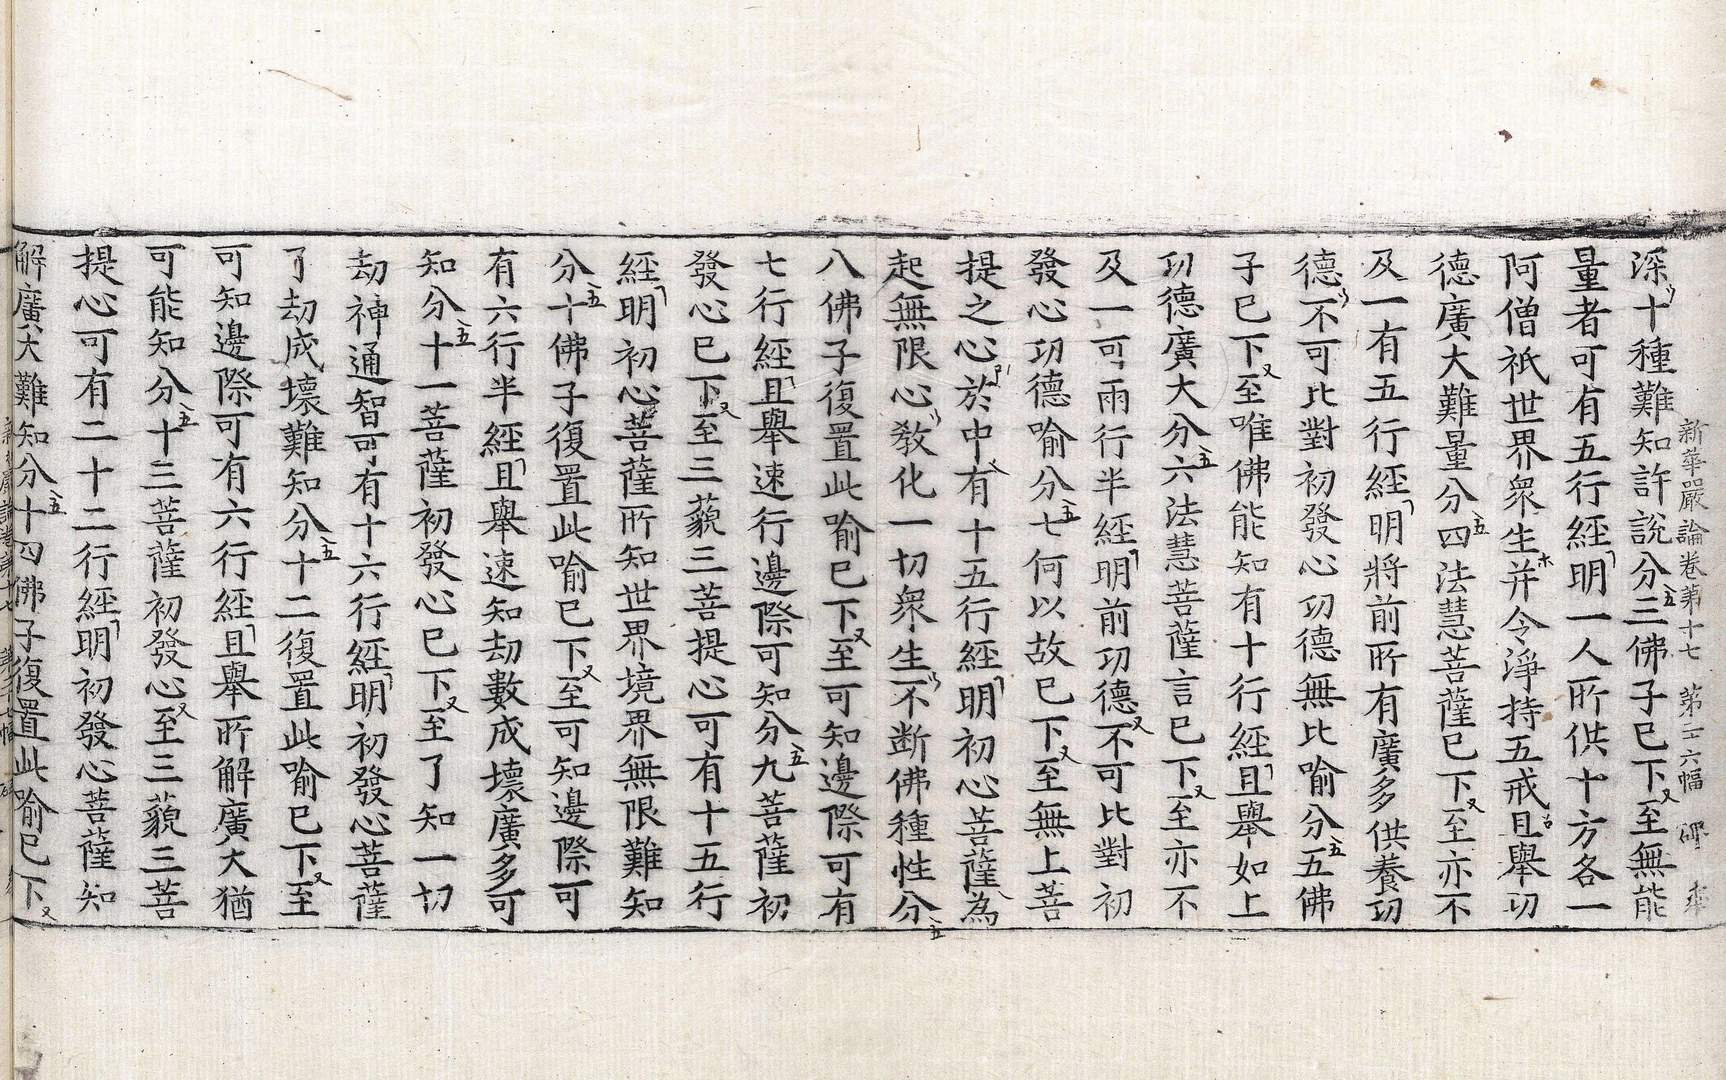 新華嚴論卷第十七 第二六幅
深十種難知許說分三佛子已下至無能
量者可有五行經明一人所供十方各一
阿僧祇世界衆生并令淨持五戒且舉功
德廣大難量分四法慧菩薩已下至亦不
及一有五行經明將前所有廣多供養功
德不可比對初發心功德無比喻分五佛
子已下至唯佛能知有十行經且舉如上
功德廣大分六法慧菩薩言已下至亦不
及一可兩行半經明前功德不可比對初
發心功德喻分七何以故已下至無上菩
提之心於中有十五行經明初心菩薩為
起無限心教化一切衆生不斷佛種性分
八佛子復置此喻已下至可知邊際可有
七行經且舉速行邊際可知分九菩薩初
發心已下至三藐三菩提心可有十五行
經明初心菩薩所知世界境界無限難知
分十佛子復置此喻已下至可知邊際可
有六行半經且舉速知劫數成壞廣多可
知分十一菩薩初發心已下至了知一切
劫神通智可有十六行經明初發心菩薩
了劫成壞難知分十二復置此喻已下至
可知邊際可有六行經且舉所解廣大猶
可能知分十三菩薩初發心至三藐三菩
提心可有二十二行經明初發心菩薩知
解廣大難知分十四佛子復置此喻已下